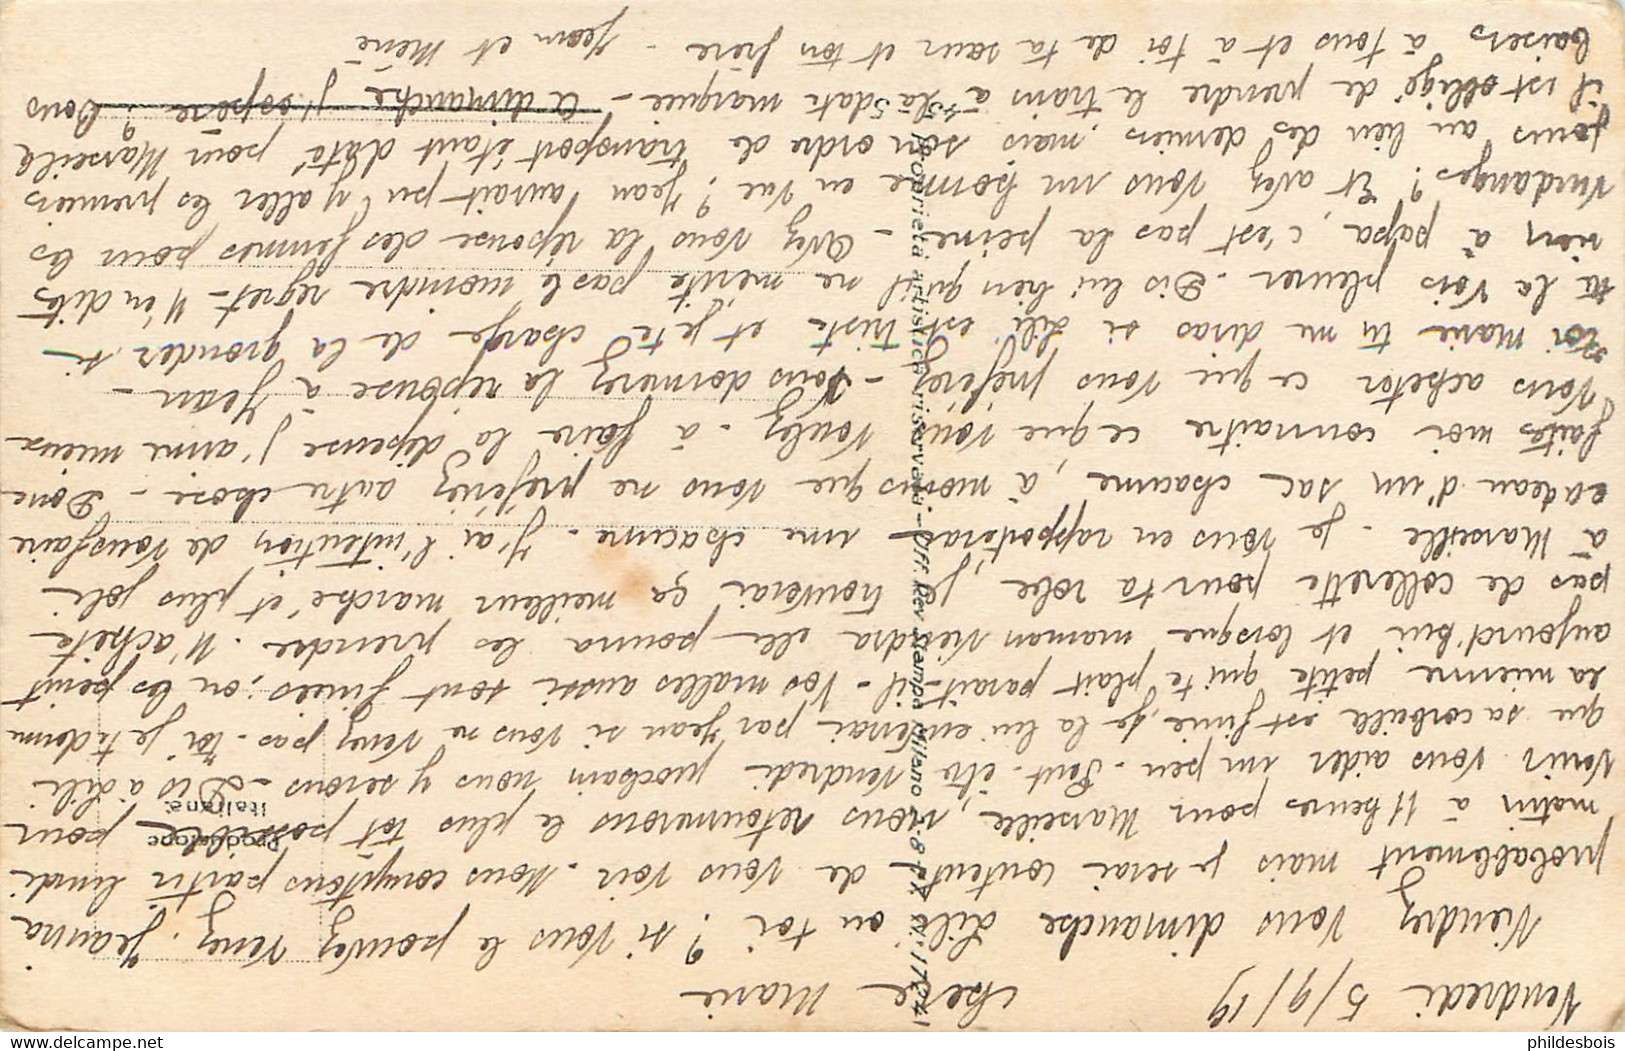 Vendredi 5/9/19 chere Marie
Viendrez vous dimanche Lili ou toi ? si vous le pouvez venez. Jeanna
probablement mais je serai content de vous voir. Nous comptons partir lundi
matin à 11 heures pour Marseille, nous retournerons le plus tot possible pour
venir vous aider un peu. Peut-être vendredi prochain nous y serons - Dis à Lili
que sa corbeille est finie, je la lui enverrai par Jean si vous ne venez pas. Toi je te donne
la mienne petite qui te plait parait-il - Vos malles aussi sont finies: on les peint
aujourd'hui et lorsque maman viendra elle pourra les prendre. N'achete
pas de collerette pour ta robe je trouverai ça meilleur marché et plus joli
à Marseille - je vous en rapporterai une chacune. J'ai l'intention de vous faire
cadeau d'un sac chacune, à moins que vous ne préfériez autre chose - Donc
faites moi connaitre ce que vous voulez - à faire la dépense j'aime mieux
vous acheter ce que vous préférez - Vous donnerez la réponse à Jean -
Toi Marie tu me diras si Lili est triste et je te charge de la gronder si
tu la vois pleurer. Dis lui bien qu'il ne merite pas le moindre regret - N'en dites
rien à papa, c'est pas la peine - Avez vous la réponse des femmes pour les
vendanges ? Et avez vous un homme en vue ? Jean aurait pu y aller les premiers
jours au lieu des derniers mais son ordre de transport étant daté pour Marseille
il est obligé de prendre le train à la date marquée - A dimanche j'espère ? Bons
baisers à tous et à toi de ta sœur et ton frère - Jean et Méné
Proprietà artistica riservata - Uff. Rev. Stampa Milano
Produzione
italiana.
delcampe.net
phildesbois